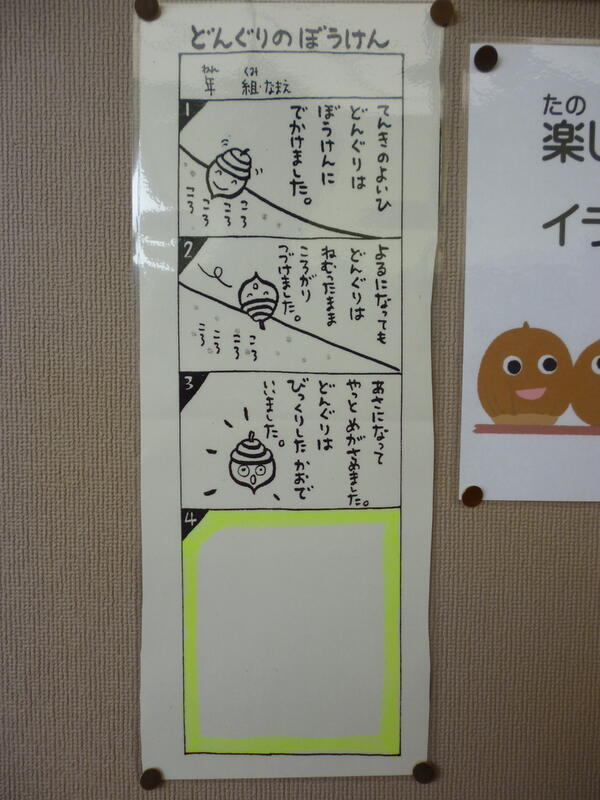 どんぐりのぼうけん
ねん くみ
年 組・なまえ
1
てんきのよいひ
どんぐりは
ぼうけんに
でかけました。
ころ
ころ
ころ
ころ
2
よるになっても
どんぐりは
ねむったまま
ころがり
つづけました。
ころ
ころ
ころ
ころ
3
あさになって
やっとめがさめました。
どんぐりは
びっくりしたかおで
いいました。
4
たの
楽し
イラ